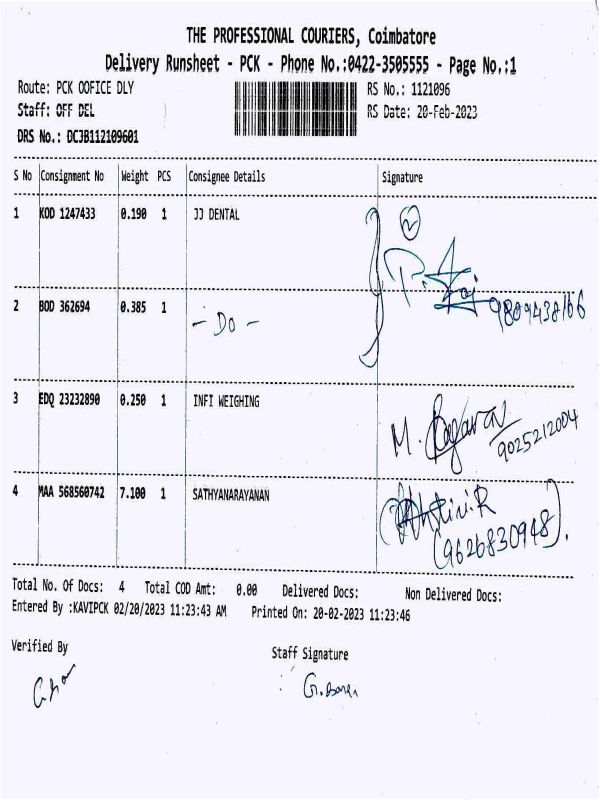 THE PROFESSIONAL COURIERS, Coimbatore
Delivery Runsheet - PCK - Phone No.:0422-3505555 - Page No.:1
Route: PCK OOFICE DLY RS No.: 1121096
Staff: OFF DEL RS Date: 20-Feb-2023
DRS No.: DCJB112109601
S No Consignment No Weight PCS Consignee Details Signature
1 KOD 1247433 0.190 1 JJ DENTAL
2 BOD 362694 0.385 1 - Do -
3 EDQ 23232890 0.250 1 INFI WEIGHING
M.
9025212004
4 MAA 568560742 7.100 1 SATHYANARAYANAN
(9626830948).
Total No. Of Docs: 4 Total COD Amt: 0.00 Delivered Docs: Non Delivered Docs:
Entered By :KAVIPCK 02/20/2023 11:23:43 AM Printed On: 20-02-2023 11:23:46
Verified By Staff Signature